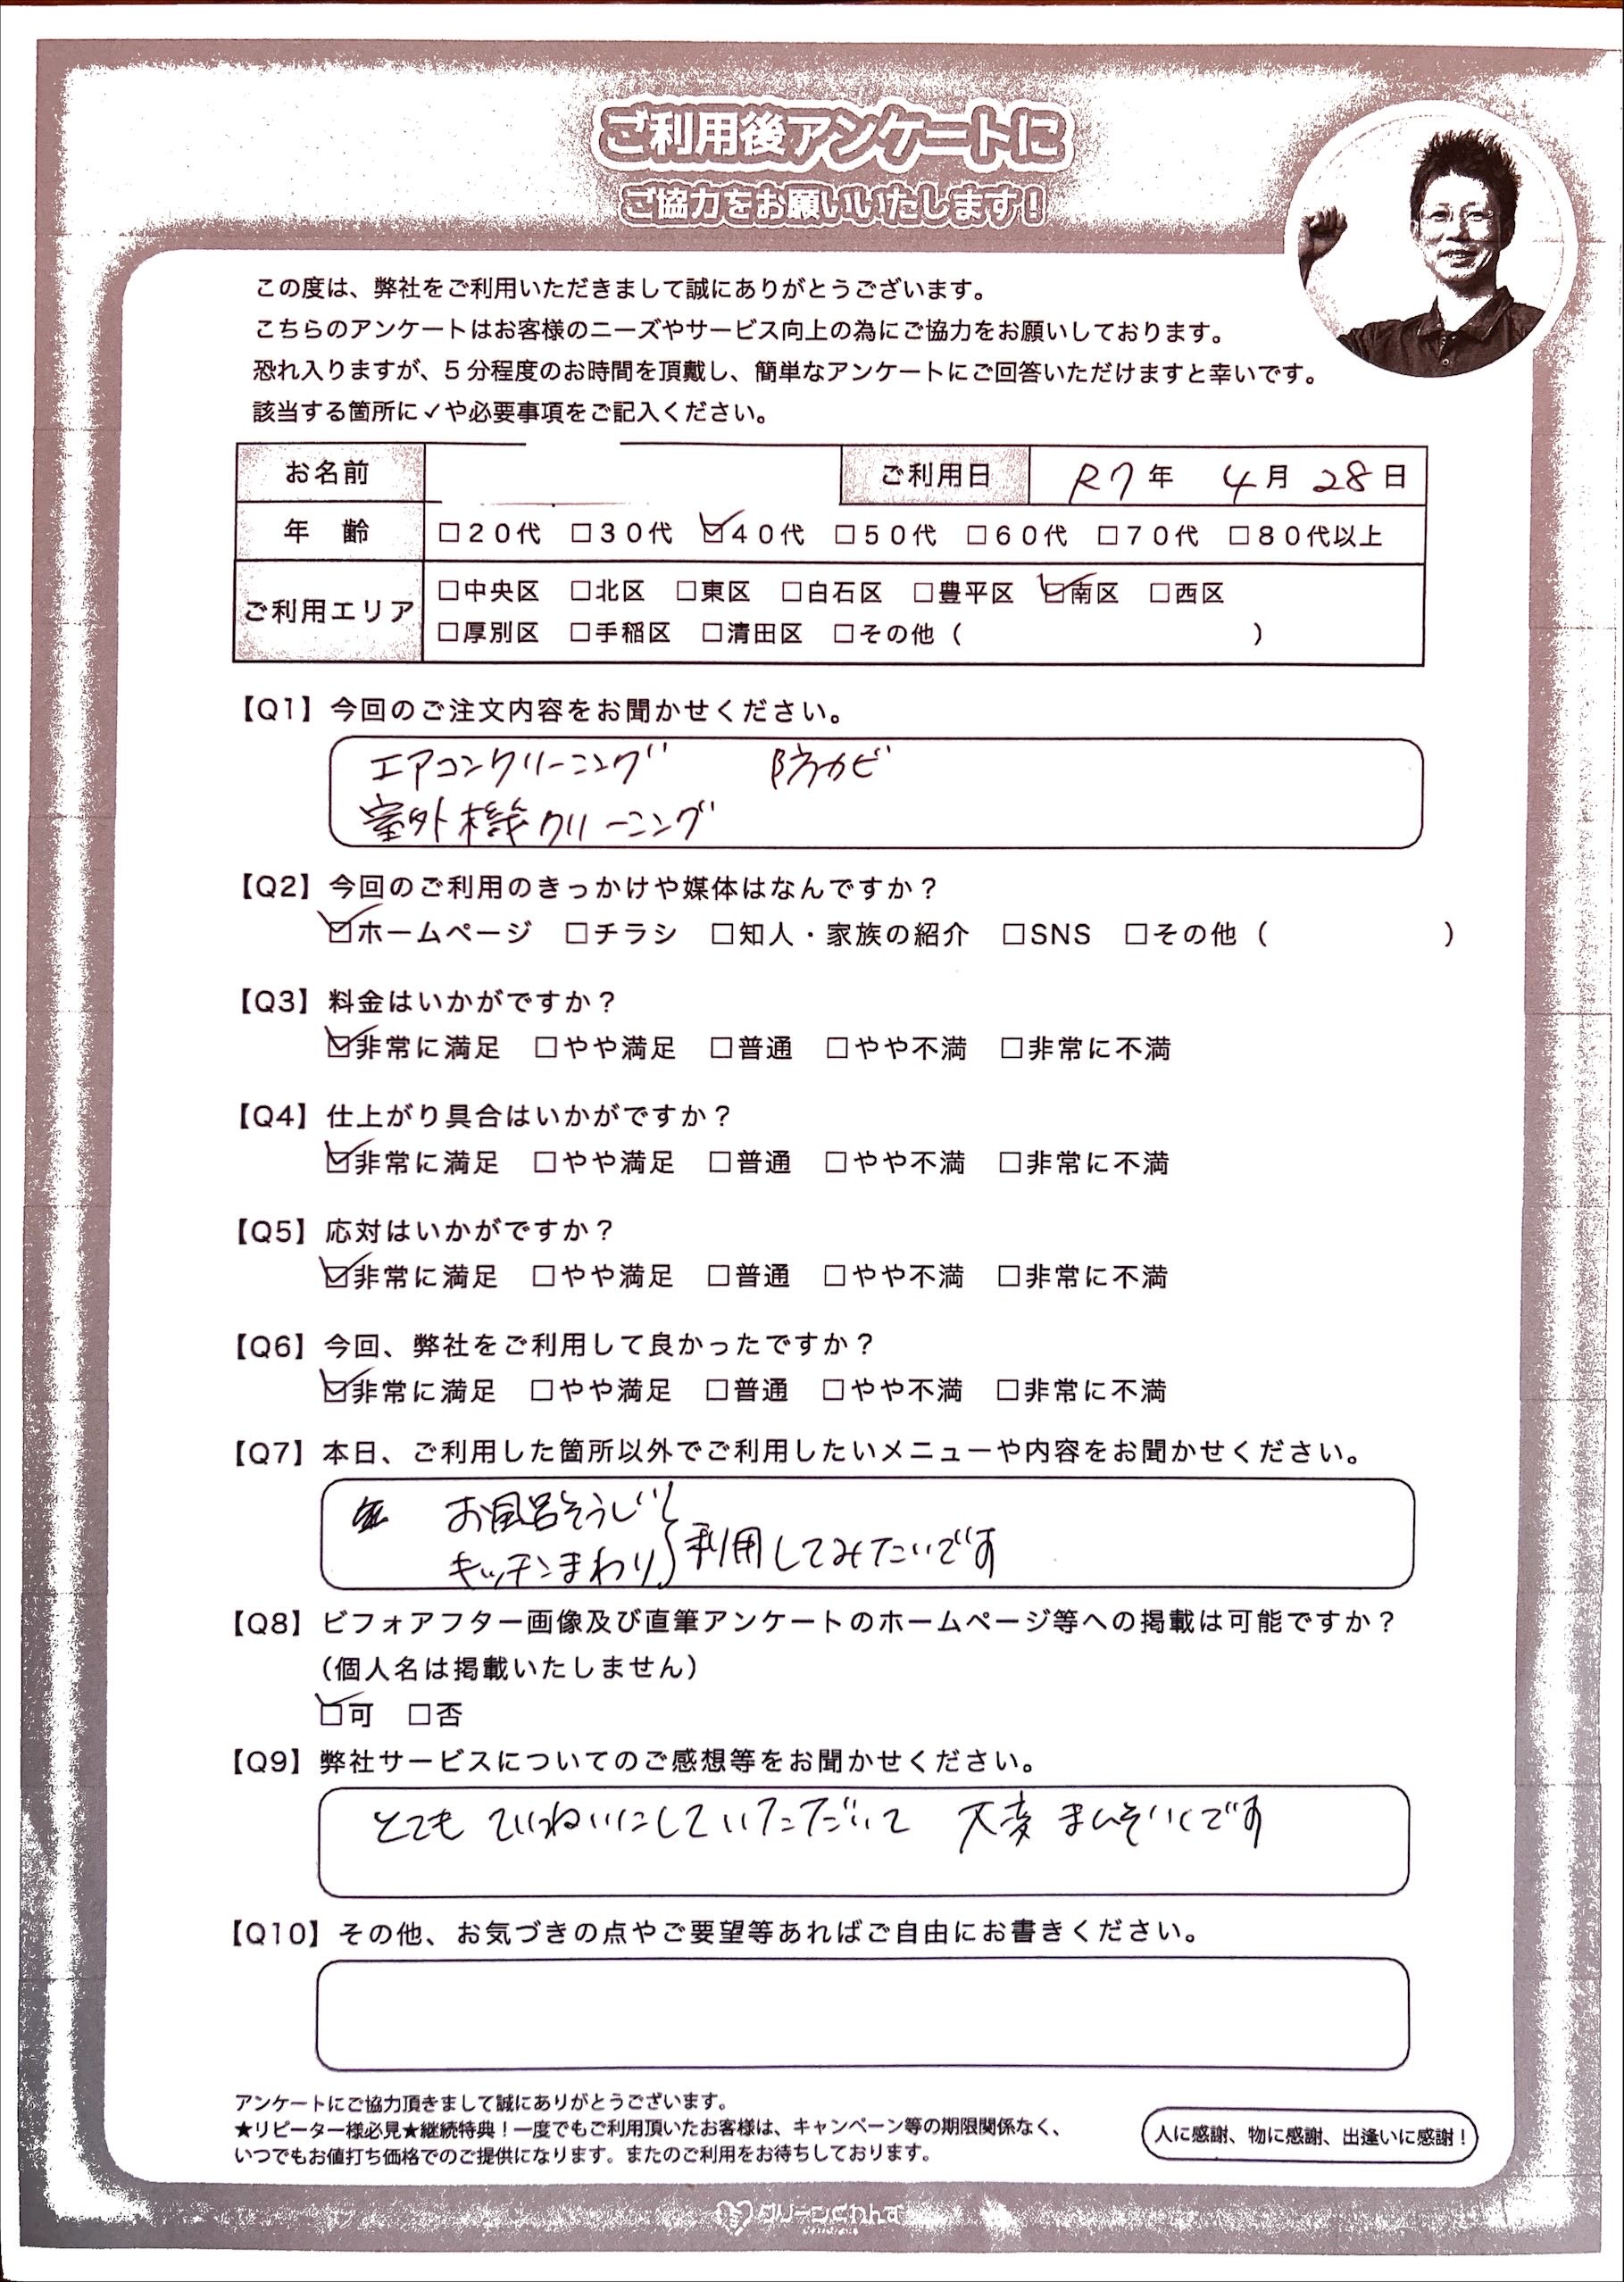 ご利用後アンケートに
ご協力をお願いいたします!
この度は、弊社をご利用いただきまして誠にありがとうございます。
こちらのアンケートはお客様のニーズやサービス向上の為にご協力をお願いしております。
恐れ入りますが、5分程度のお時間を頂戴し、簡単なアンケートにご回答いただけますと幸いです。
該当する箇所に✓や必要事項をご記入ください。
お名前 ご利用日 R7年 4月 28日
年 齢 □20代 □30代 ☑40代 □50代 □60代 □70代 □80代以上
ご利用エリア □中央区 □北区 □東区 □白石区 □豊平区 ☑南区 □西区
□厚別区 □手稲区 □清田区 □その他( )
【Q1】今回のご注文内容をお聞かせください。
エアコンクリーニング 防カビ
室外機クリーニング
【Q2】今回のご利用のきっかけや媒体はなんですか?
☑ホームページ □チラシ □知人・家族の紹介 □SNS □その他( )
【Q3】料金はいかがですか?
☑非常に満足 □やや満足 □普通 □やや不満 □非常に不満
【Q4】仕上がり具合はいかがですか?
☑非常に満足 □やや満足 □普通 □やや不満 □非常に不満
【Q5】応対はいかがですか?
☑非常に満足 □やや満足 □普通 □やや不満 □非常に不満
【Q6】今回、弊社をご利用して良かったですか?
☑非常に満足 □やや満足 □普通 □やや不満 □非常に不満
【Q7】本日、ご利用した箇所以外でご利用したいメニューや内容をお聞かせください。
お風呂そうじ
キッチンまわり}利用してみたいです
【Q8】ビフォアフター画像及び直筆アンケートのホームページ等への掲載は可能ですか?
(個人名は掲載いたしません)
☑可 □否
【Q9】弊社サービスについてのご感想等をお聞かせください。
とても ていねいにしていただいて 大変 まんぞくです
【Q10】その他、お気づきの点やご要望等あればご自由にお書きください。
アンケートにご協力頂きまして誠にありがとうございます。
★リピーター様必見★継続特典!一度でもご利用頂いたお客様は、キャンペーン等の期限関係なく、
いつでもお値打ち価格でのご提供になります。またのご利用をお待ちしております。
人に感謝、物に感謝、出逢いに感謝!